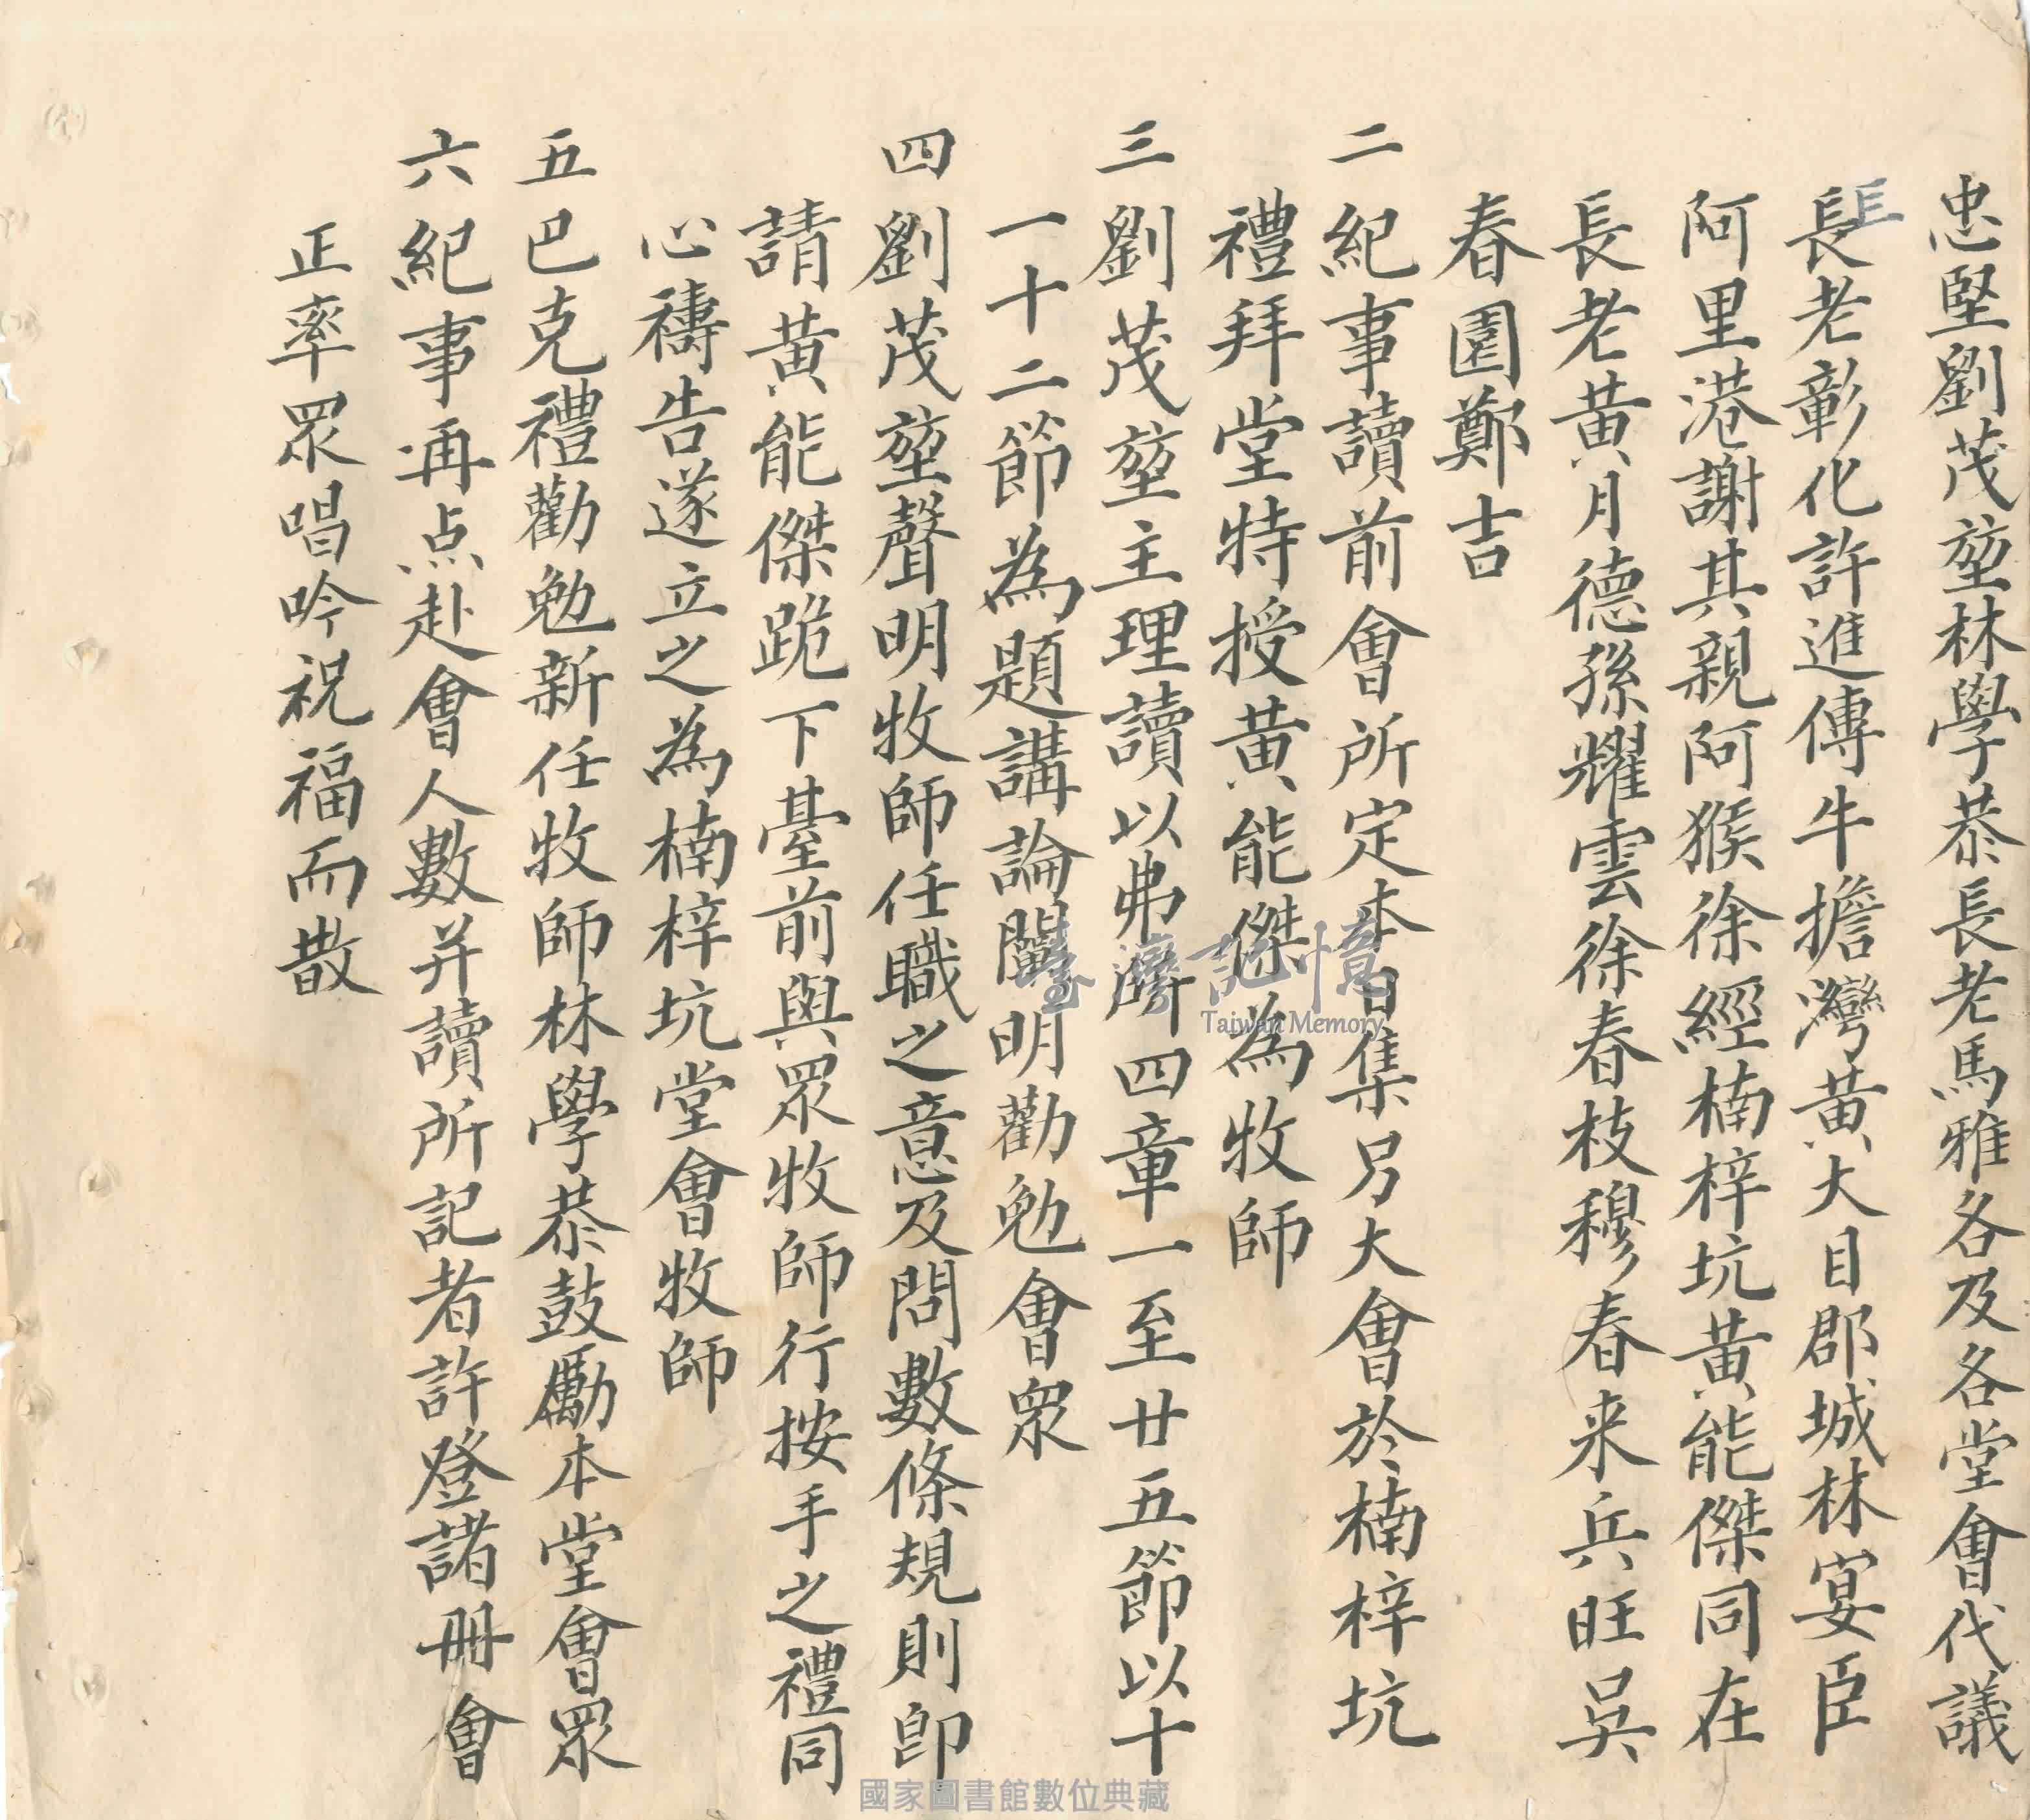 忠堅劉茂堃林學恭長老馬雅各及各堂會代議
長老彰化許進傳牛擔灣黃大目郡城林宴臣
阿里港謝其親阿猴徐經楠梓坑黃能傑同在
長老黃月德孫耀雲徐春枝穆春来兵旺吳
春園鄭吉
二紀事讀前會所定本日集另大會於楠梓坑
禮拜堂特授黃能傑為牧師
三劉茂堃主理讀以弗所四章一至廿五節以十
一十二節為題講論闡明勸勉會衆
四劉茂堃聲明牧師任職之意及問數條規則即
請黃能傑跪下臺前與眾牧師行按手之禮同
心禱告遂立之為楠梓坑堂會牧師
五巴克禮勸勉新任牧師林學恭鼓勵本堂會眾
六紀事再点赴會人數并讀所記者許登諸冊會
正率眾唱吟祝福而散
臺灣記憶
Taiwan Memory
國家圖書館數位典藏